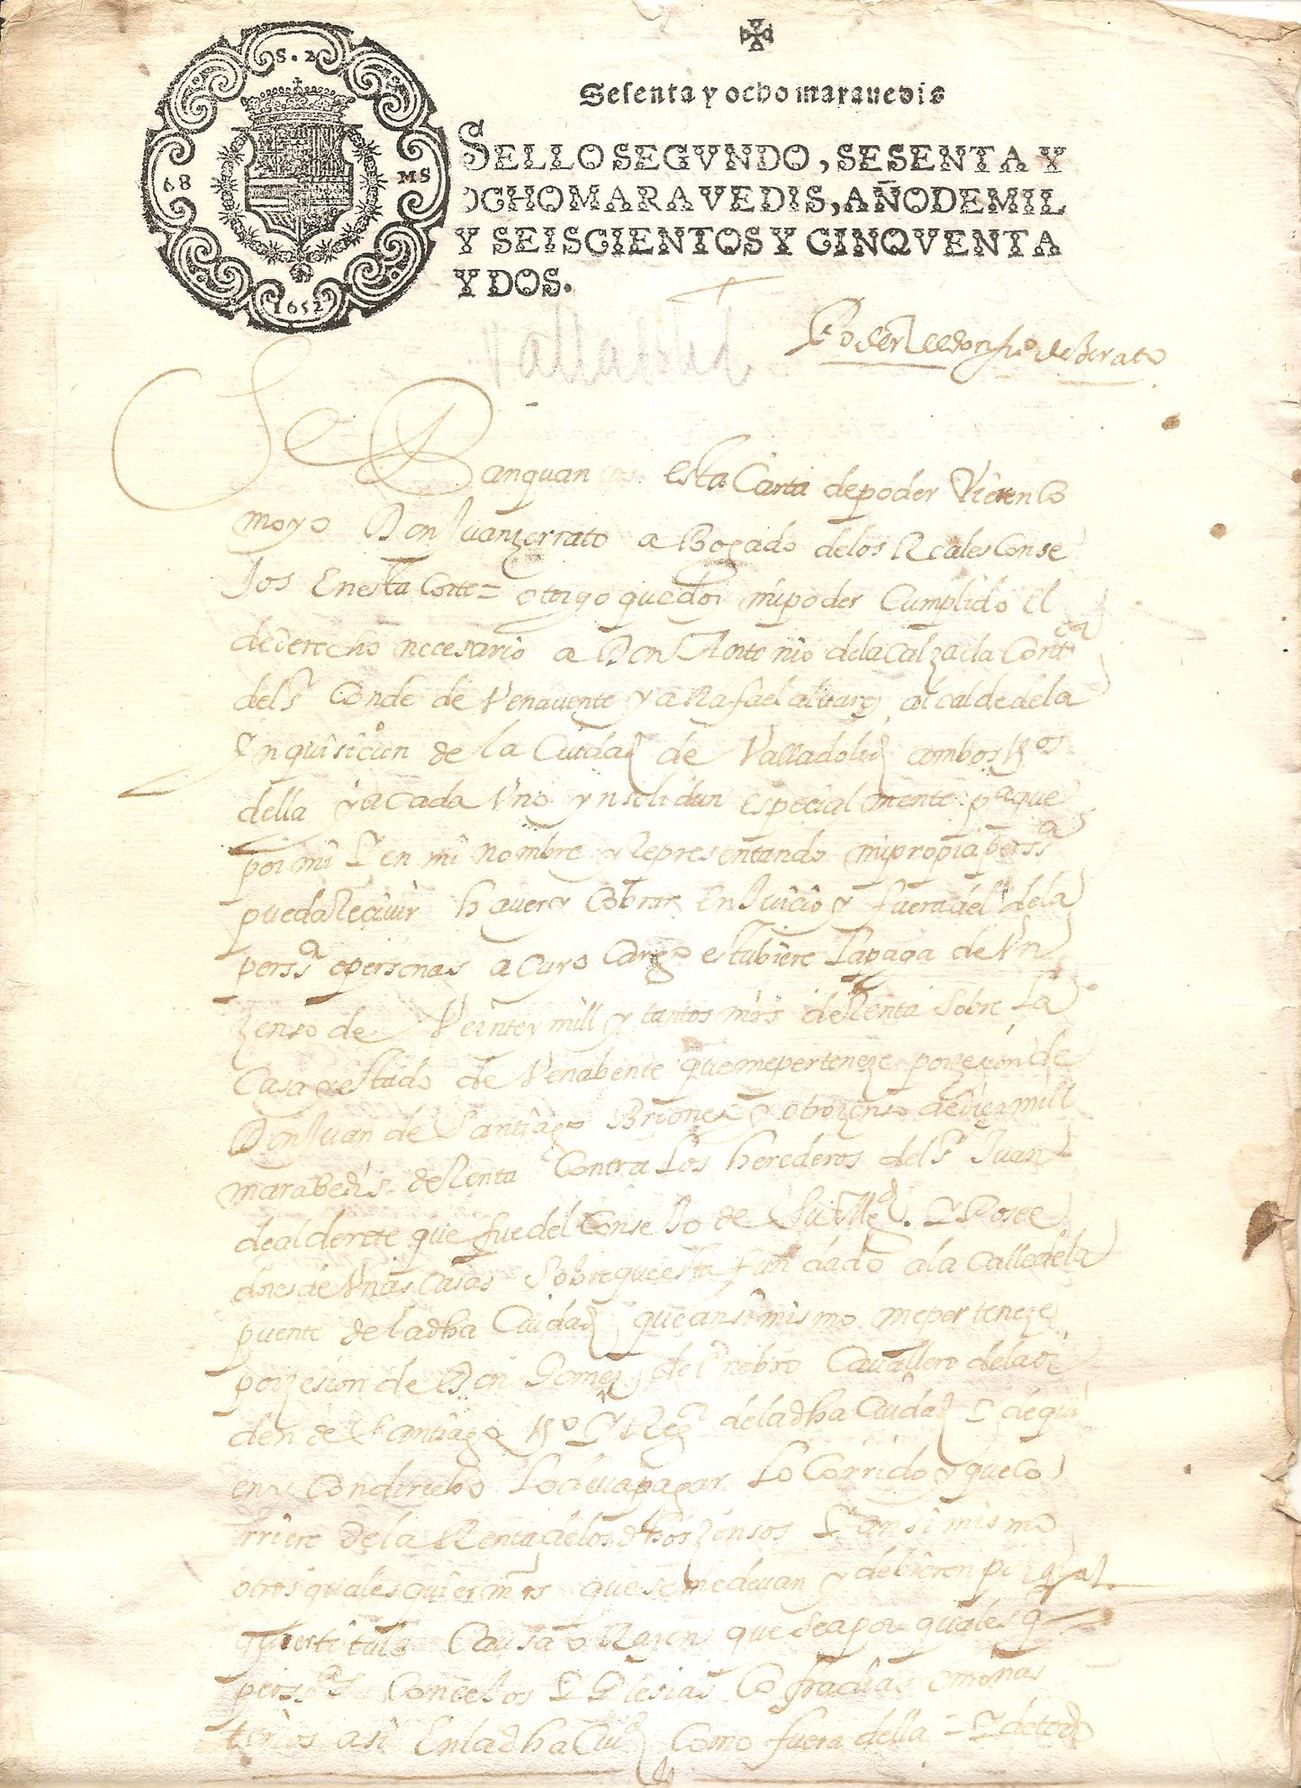 S. 2
68 MS
1652
Sesenta y ocho maravedis
SELLO SEGVNDO, SESENTA Y
OCHO MARAVEDIS, AÑO DE MIL
Y SEISCIENTOS Y CINQVENTA
Y DOS.
Valladolid
Poder
Sepan quantos esta Carta de poder Vieren Co
moyo Don Juan zerrato aBogado delos Reales Conse
Jos En esta Corte = otorgo que doy mi poder Cumplido el
de derecho necesario a Don Antonio dela Calzada
del Sr Conde de Venauente y a Rafael aluarez alcalde dela
Ynquisicion de la Ciudad de Valladolid ambos Vos
della y a Cada Vno ynsolidun especialmente pa que
por mi Y en mi nombre y Representando mi propia perssa
pueda Reciuir hauer y Cobrar En Juicio y fuera del dela
perssa o personas a Cuyo Cargo estubiere La paga de Vn
zenso de Veinte mill y tantos mrs de Renta Sobre La
Casa y estado de Venabente que me perteneze por zesion de
Don Juan de Santiago Briones y otro zenso de diez mill
marabedis de Renta Contra Los herederos del Sr Juan
de alderete que fue del Conse Jo de Su Mgd. Y Posee
dores de Vnas Casas Sobre que esta fundado a la Calle de la
puente de la dha Ciudad que ansimismo me perteneze
por zesion de Don Gomez de Enebro Cauallero dela or
den de Santiago Vo Y Regor de la dha Ciudad Y de qui
en Con derecho Lo deua pagar Lo Corrido y que Co
rriere de la Renta de los dhos zensos Y ansimismo
otros qualesquier mrs que se me deuan y debieren por qual
quier titulo Causa o Razon que sea por quales q
perssas Conce Jos Y Glesias Cofradias o mones
terios asi En la dha Ciud Como fuera della = Y de todo